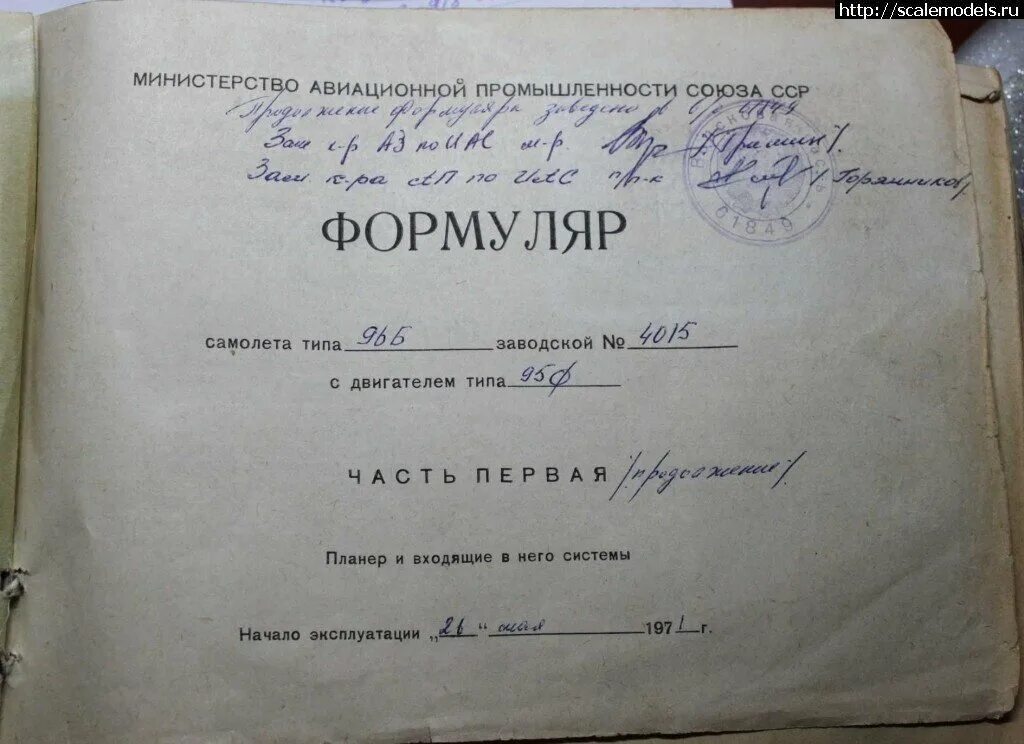 http://scalemodels.ru
МИНИСТЕРСТВО АВИАЦИОННОЙ ПРОМЫШЛЕННОСТИ СОЮЗА ССР
Продолжение формуляра заведено в в/ч 01849
Зам к-р АЭ по ИАС м-р.
Зам к-ра АП по ИАС п/п-к /Горянников/
01849
ФОРМУЛЯР
самолета типа 96Б заводской № 4015
с двигателем типа 95ф
ЧАСТЬ ПЕРВАЯ /продолжение/
Планер и входящие в него системы
Начало эксплуатации „26“ мая 1971 г.